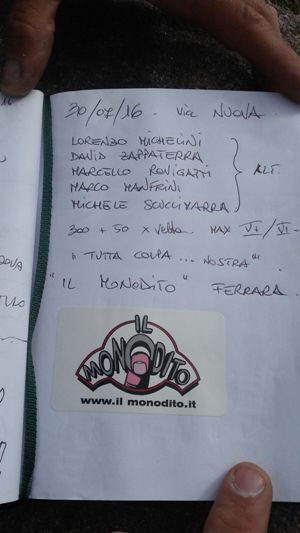 30/07/16 - Via NUOVA
LORENZO MICHELINI
DAVID ZAPPATERRA
MARCELLO ROVIGATTI
MARCO MANFRINI
MICHELE SCUCCIMARRA
ALT.
300 + 50 x vetta. MAX V+/VI-
"TUTTA COLPA... NOSTRA"
"IL MONODITO" FERRARA
IL
MONODITO
www.il monodito.it